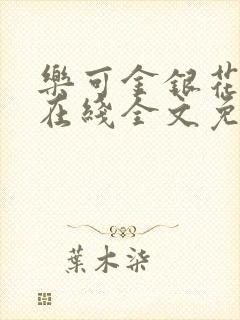 樂可金銀花
在綫全文免
葉木柒